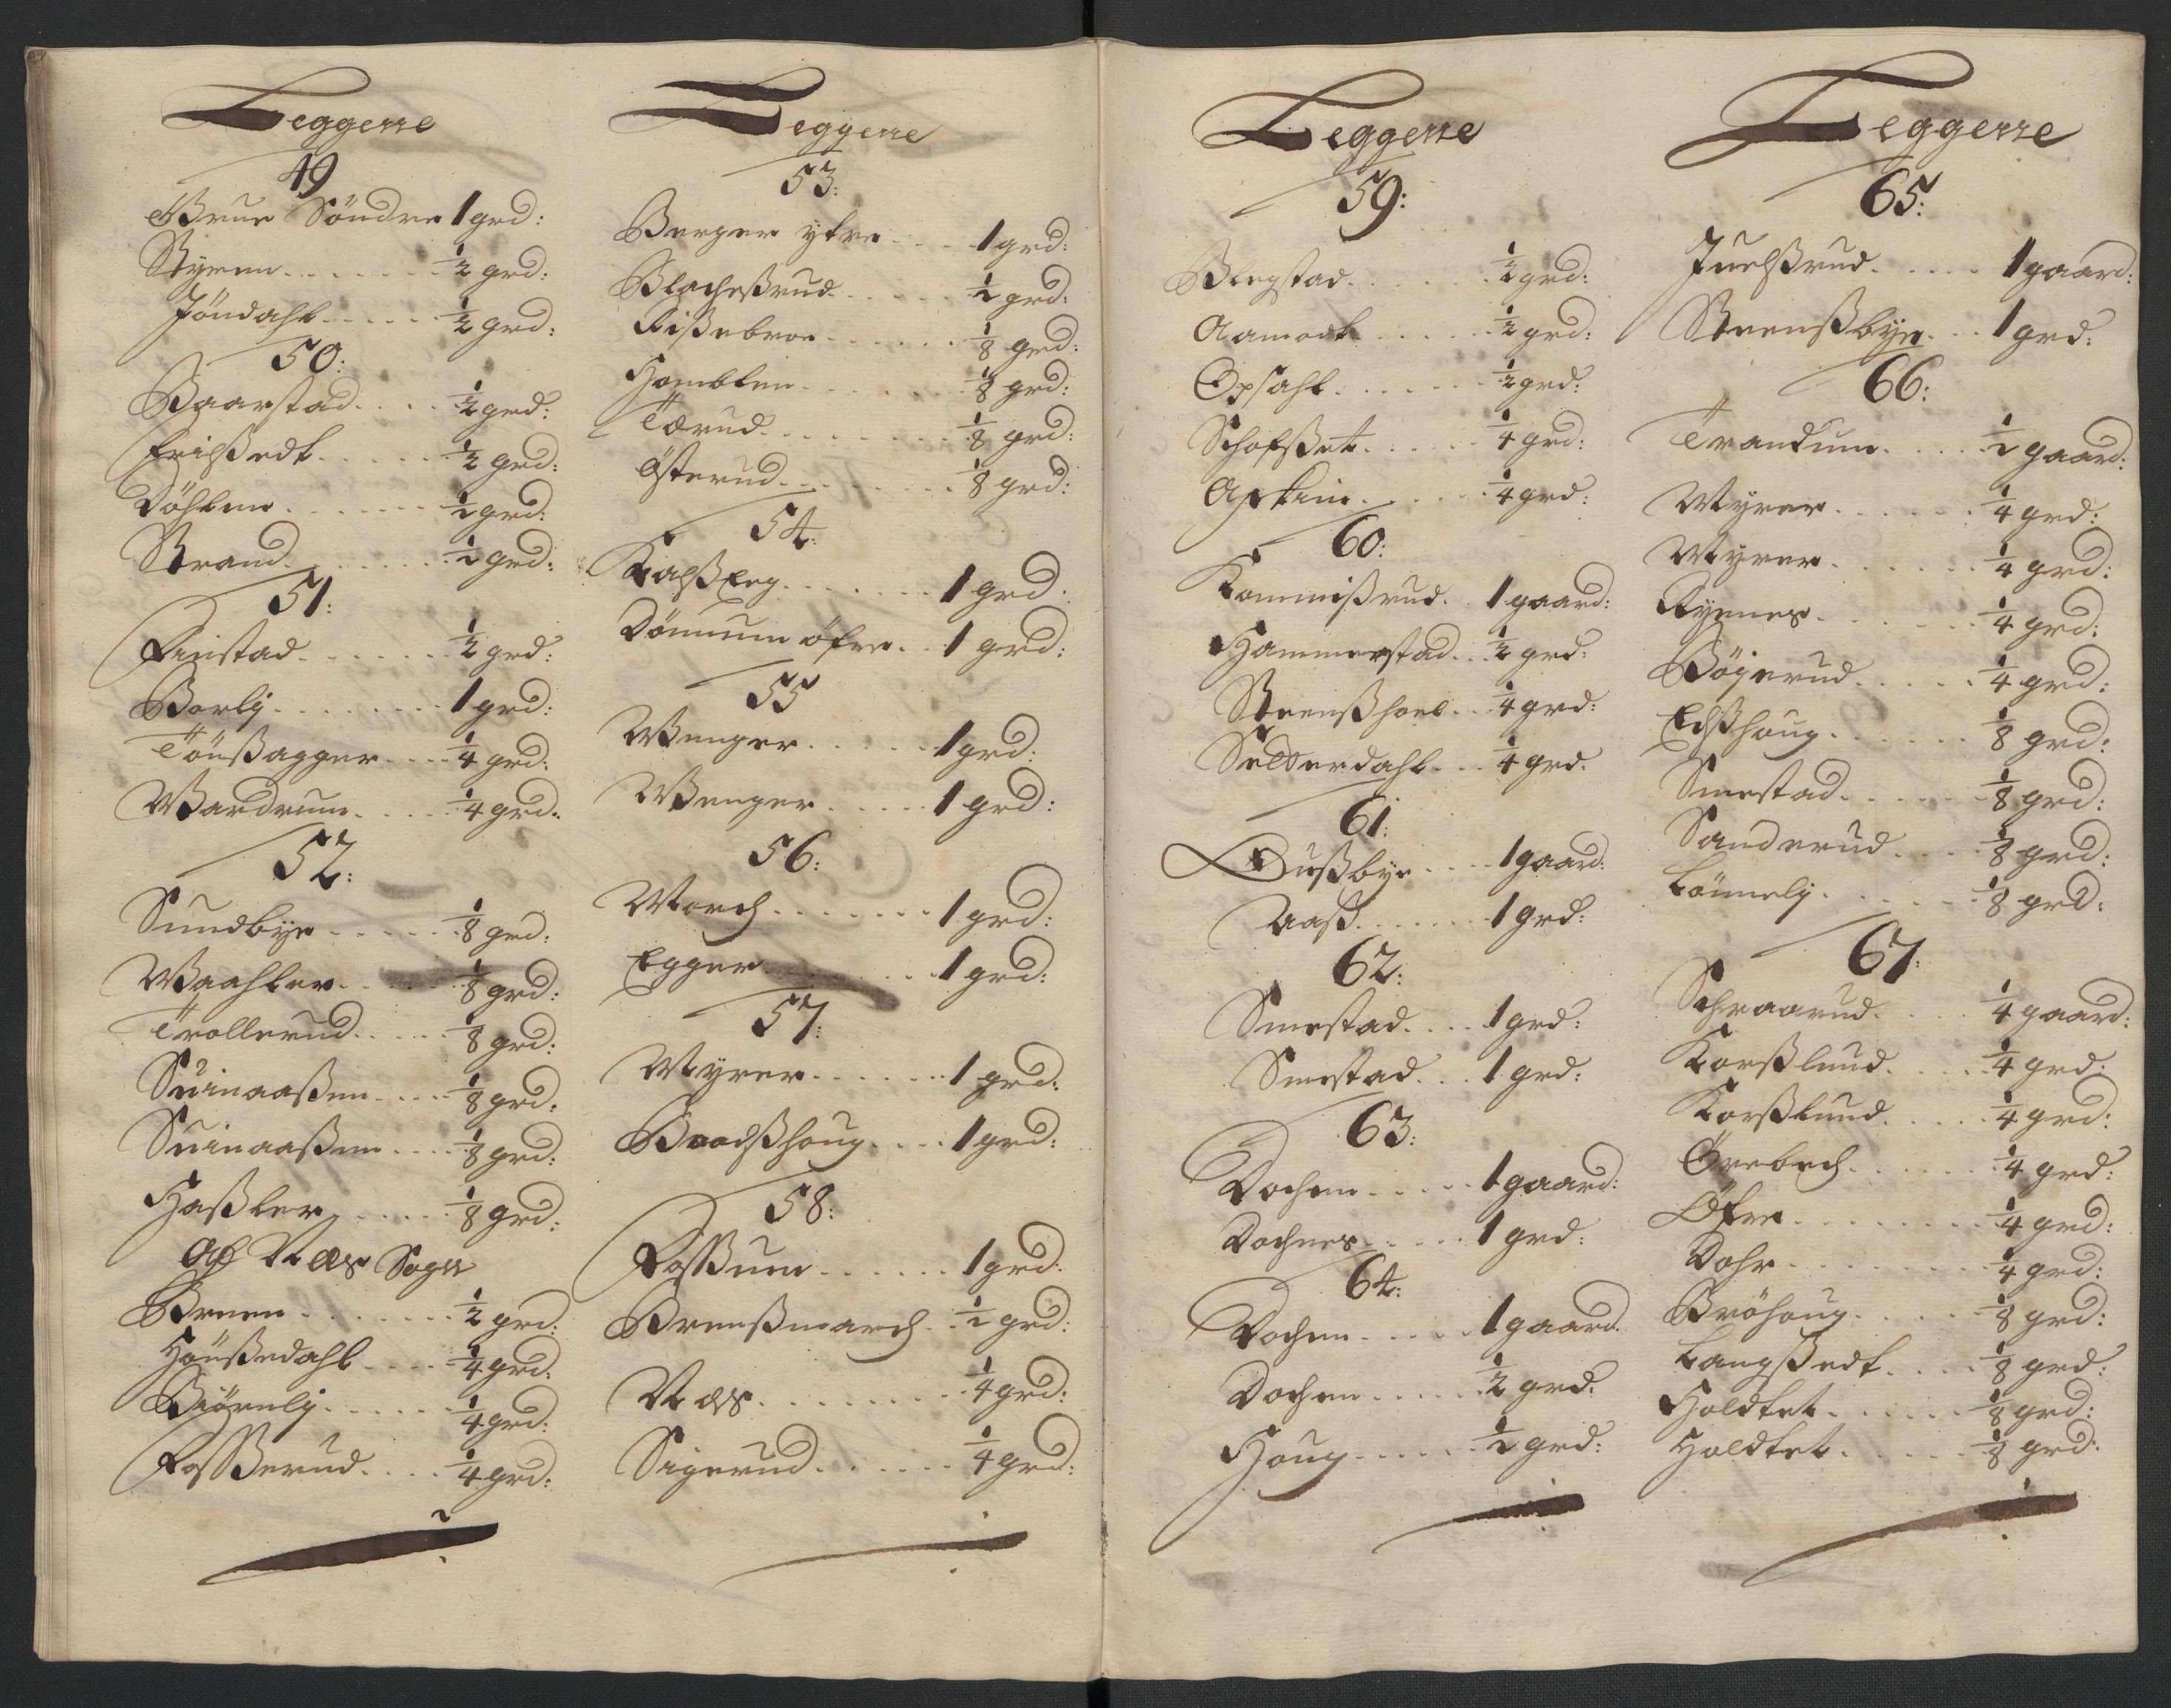 Leggerne
49
Brue Söndre 1 grd:
Styren ½ grd:
Jöndahl ½ grd:
50:
Baarstad ½ grd:
Erichßedt ½ grd:
Döhlen ½ grd:
Strand ½ grd:
51:
Finstad ½ grd:
Borli 1 grd:
Tönßagger ¼ grd:
Wardrum ¼ grd:
52:
Sundbye ⅛ grd:
Waahler ⅛ grd:
Trollerud ⅛ grd:
Svinaaßen ⅛ grd:
Svinaaßen ⅛ grd:
Haßler ⅛ grd:
Af Næs Sogn
Breen ½ grd:
Höußedahl ¼ grd:
Biörnlj ¼ grd:
Foßerud ¼ grd:
Leggerne
53:
Berger ytre 1 grd:
Blacheßrud ½ grd:
Rißebroe ⅛ grd:
Hamblen ⅛ grd:
Tærud ⅛ grd:
Österud ⅛ grd:
54:
Kalßeeg 1 grd:
Dönnum öfre 1 grd:
55
Wenger 1 grd:
Wenger 1 grd:
56:
Morch 1 grd:
Egger 1 grd:
57:
Myrer 1 grd:
Brodßhoug 1 grd:
58:
Foßum 1 grd:
Breenßmarch ½ grd:
Næs ¼ grd:
Sigerud ¼ grd:
Leggerne
59:
Blegstad ½ grd:
Aamodt ½ grd:
Opsahl ½ grd:
Schofßet ¼ grd:
Askim ¼ grd:
60:
Kommißrud 1 gaard:
Hammerstad ½ grd:
Steenßhoel ¼ grd:
Setterdahl ¼ grd.
61:
Dußbye 1 gaard:
Aaß 1 grd:
62:
Smestad 1 grd:
Smestad 1 grd:
63:
Dochen 1 gaard:
Dochnes 1 grd:
64:
Dochen 1 gaard.
Dochen ½ grd:
Houg ½ grd:
Leggerne
65:
Juelßrud 1 gaard:
Steenßbye 1 grd:
66:
Trandum ½ gaard:
Myrer ¼ grd:
Myrer ¼ grd:
Ryenes ¼ grd:
Bögerud ¼ grd:
Elßhoug ⅛ grd:
Smestad ⅛ grd:
Sanderud ⅛ grd:
Lönnelj ⅛ grd:
67:
Schraarud ¼ gaard:
Korßlund ¼ grd:
Korßlund ¼ grd:
Örebech ¼ grd:
Öfre ¼ grd:
Dohr ¼ grd:
Bröhoug ⅛ grd:
Langßedt ⅛ grd:
Holdtet ⅛ grd:
Holdtet ⅛ grd: